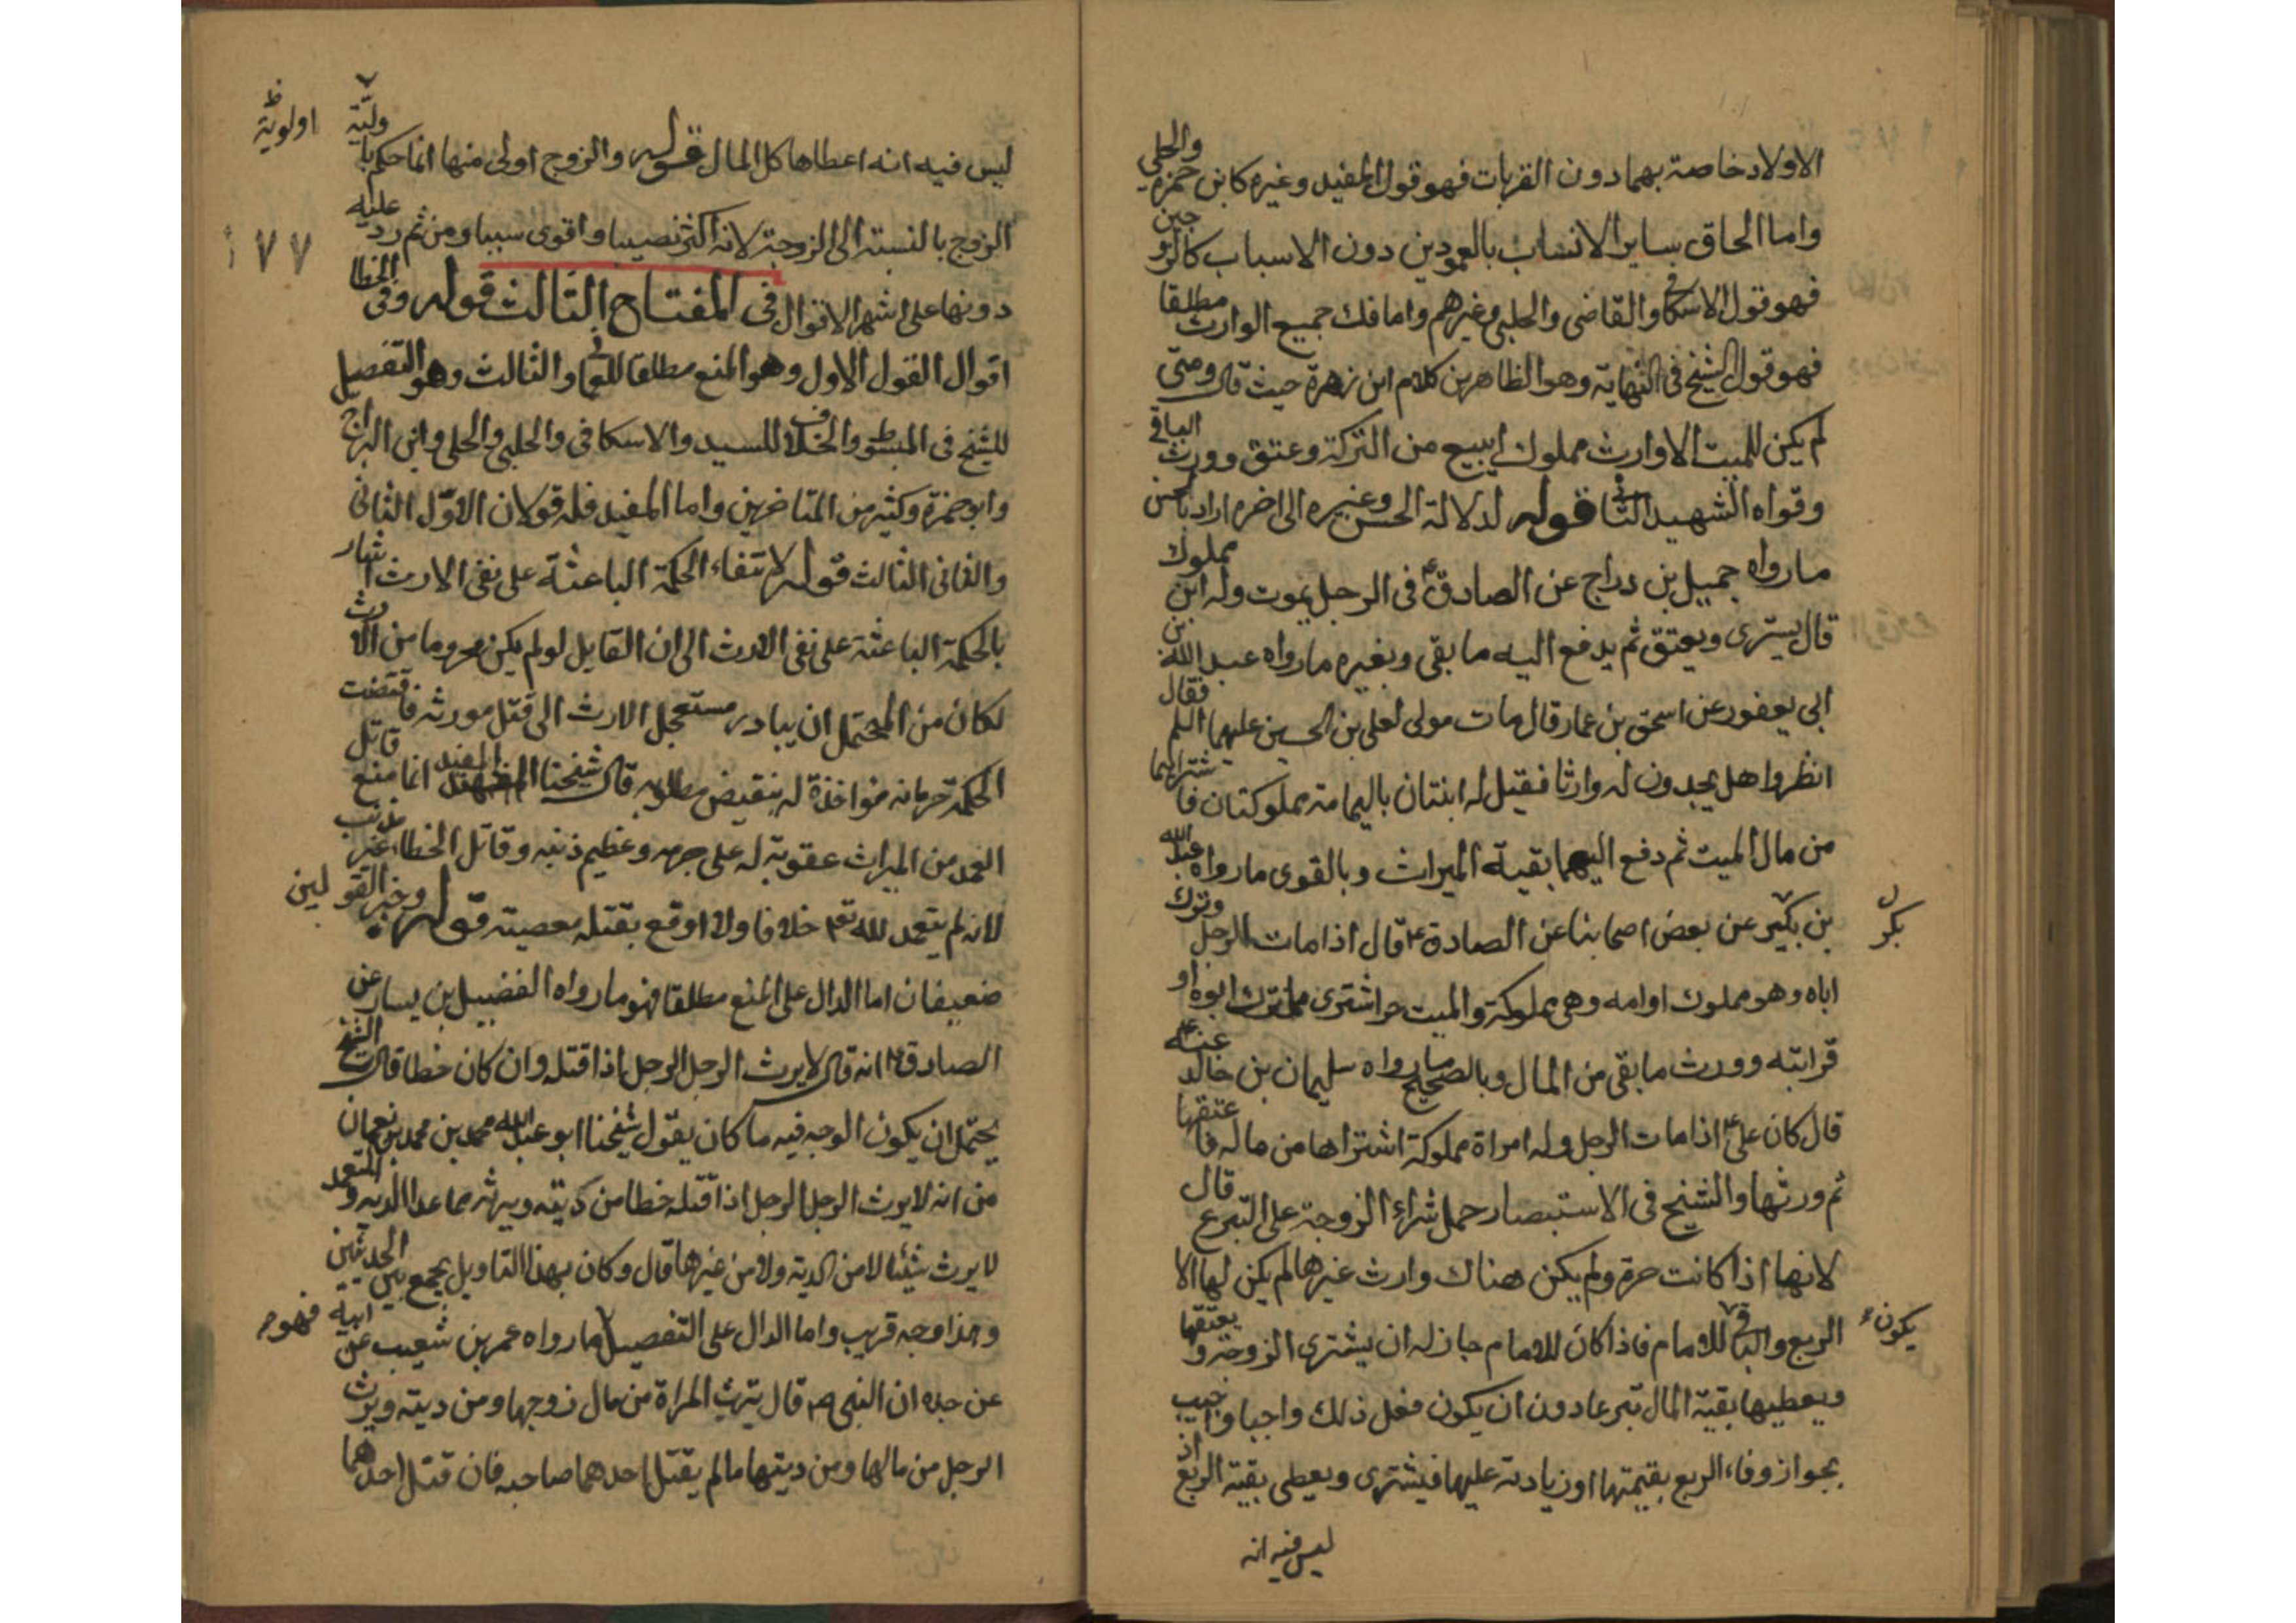 الاولاد خاصة بهما دون القربات فهو قول المفيد وغيره كابن حمزة والحلي
واما الحاق ساير الانساب بالعمودين دون الاسباب كالزوجين
فهو قول الاسكافي والقاضي والحلبي وغيرهم واما فك جميع الوارث مطلقا
فهو قول الشيخ في النهاية وهو الظاهر من كلام ابن زهرة حيث قال ومتى
لم يكن للميت الا وارث مملوك ابيع من التركة وعتق وورث الباقي
وقواه الشهيد الثاني قوله لدلالة الحسن وغيره الى اخره اراد بالحسن
ما رواه جميل بن دراج عن الصادق ع في الرجل يموت وله ابن مملوك
قال يشترى ويعتق ثم يدفع اليه ما بقى وبغيره ما رواه عبد الله بن
ابي يعفور عن اسحق بن عمار قال مات مولى لعلي بن الحسين عليهما السلم فقال
انظروا هل تجدون له وارثا فقيل له ابنتان باليمامة مملوكتان فاشتراهما
من مال الميت ثم دفع اليهما بقية الميراث وبالقوى ما رواه عبد الله
بن بكير عن بعض اصحابنا عن الصادق ع قال اذا مات الرجل وترك
بكر ل
اباه وهو مملوك او امه وهي مملوكة والميت حر اشترى مما ترك ابوه او
قرابته وورث ما بقى من المال وبالصحيح ما رواه سليمان بن خالد عنه ع
قال كان علي ع اذا مات الرجل وله امراة مملوكة اشتراها من ماله فاعتقها
ثم ورثها والشيخ في الاستبصار حمل شراء الزوجة على التبرع قال
لانها اذا كانت حرة ولم يكن هناك وارث غيرها لم يكن لها الا
الربع والباقي للامام فاذا كان للامام جاز له ان يشترى الزوجة ويعتقها
يكون
ويعطيها بقية المال تبرعا دون ان يكون فعل ذلك واجبا واجيب
بجواز وفاء الربع بقيمتها او زيادته عليها فيشترى ويعطى بقية الربع اذ
ليس فيه انه
ليس فيه انه اعطاها كل المال قوله والزوج اولى منها انما حكم باولية
اولوية ظ
الزوج بالنسبة الى الزوجة لانه اكثر نصيبا واقوى سببا ومن ثم رد عليه
١٧٧
دونها على اشهر الاقوال في المفتاح الثالث قوله وفي الخطا
اقوال القول الاول وهو المنع مطلقا للعماني والثالث وهو التفصيل
للشيخ في المبسوط والخلاف للسيد والاسكافي والحلبي والحلي وابن البراج
وابو حمزة وكثير من المتاخرين واما المفيد فله قولان الاول الثاني
والثاني الثالث قوله لانتفاء الحكمة الباعثة على نفي الارث اشار
بالحكمة الباعثة على نفي الارث الى ان القايل لو لم يكن محروما من الارث
لكان من المحتمل ان يبادر مستعجل الارث الى قتل مورثه فاقتضت
الحكمة حرمانه مؤاخذة له بنقيض مطلوبه قال شيخنا المفيد انما منع قاتل
العمد من الميراث عقوبة له على جرمه وعظيم ذنبه وقاتل الخطاء غير مذنب
لانه لم يتعمد لله تعم خلافا ولا اوقع بقتله معصيته قوله وخبر القولين
ضعيفان اما الدال على المنع مطلقا فهو ما رواه الفضيل بن يسار عن
الصادق ع انه قال لا يرث الرجل الرجل اذا قتله وان كان خطا قال الشيخ
يحتمل ان يكون الوجه فيه ما كان يقول شيخنا ابو عبد الله محمد بن محمد بن نعمان
من انه لا يرث الرجل الرجل اذا قتله خطا من ديته ويرثه مما عدا الديه والمتعمد
لا يرث شيئا لا من الدية ولا من غيرها قال وكان بهذا التاويل يجمع بين الحديثين
وهذا وجه قريب واما الدال على التفصيل ما رواه عمر بن شعيب عن ابيه
فهو
عن جده ان النبي ص قال يترث المراة من مال زوجها ومن ديته ويرث
الرجل من مالها ومن ديتها ما لم يقتل احدهما صاحبه فان قتل احدهما